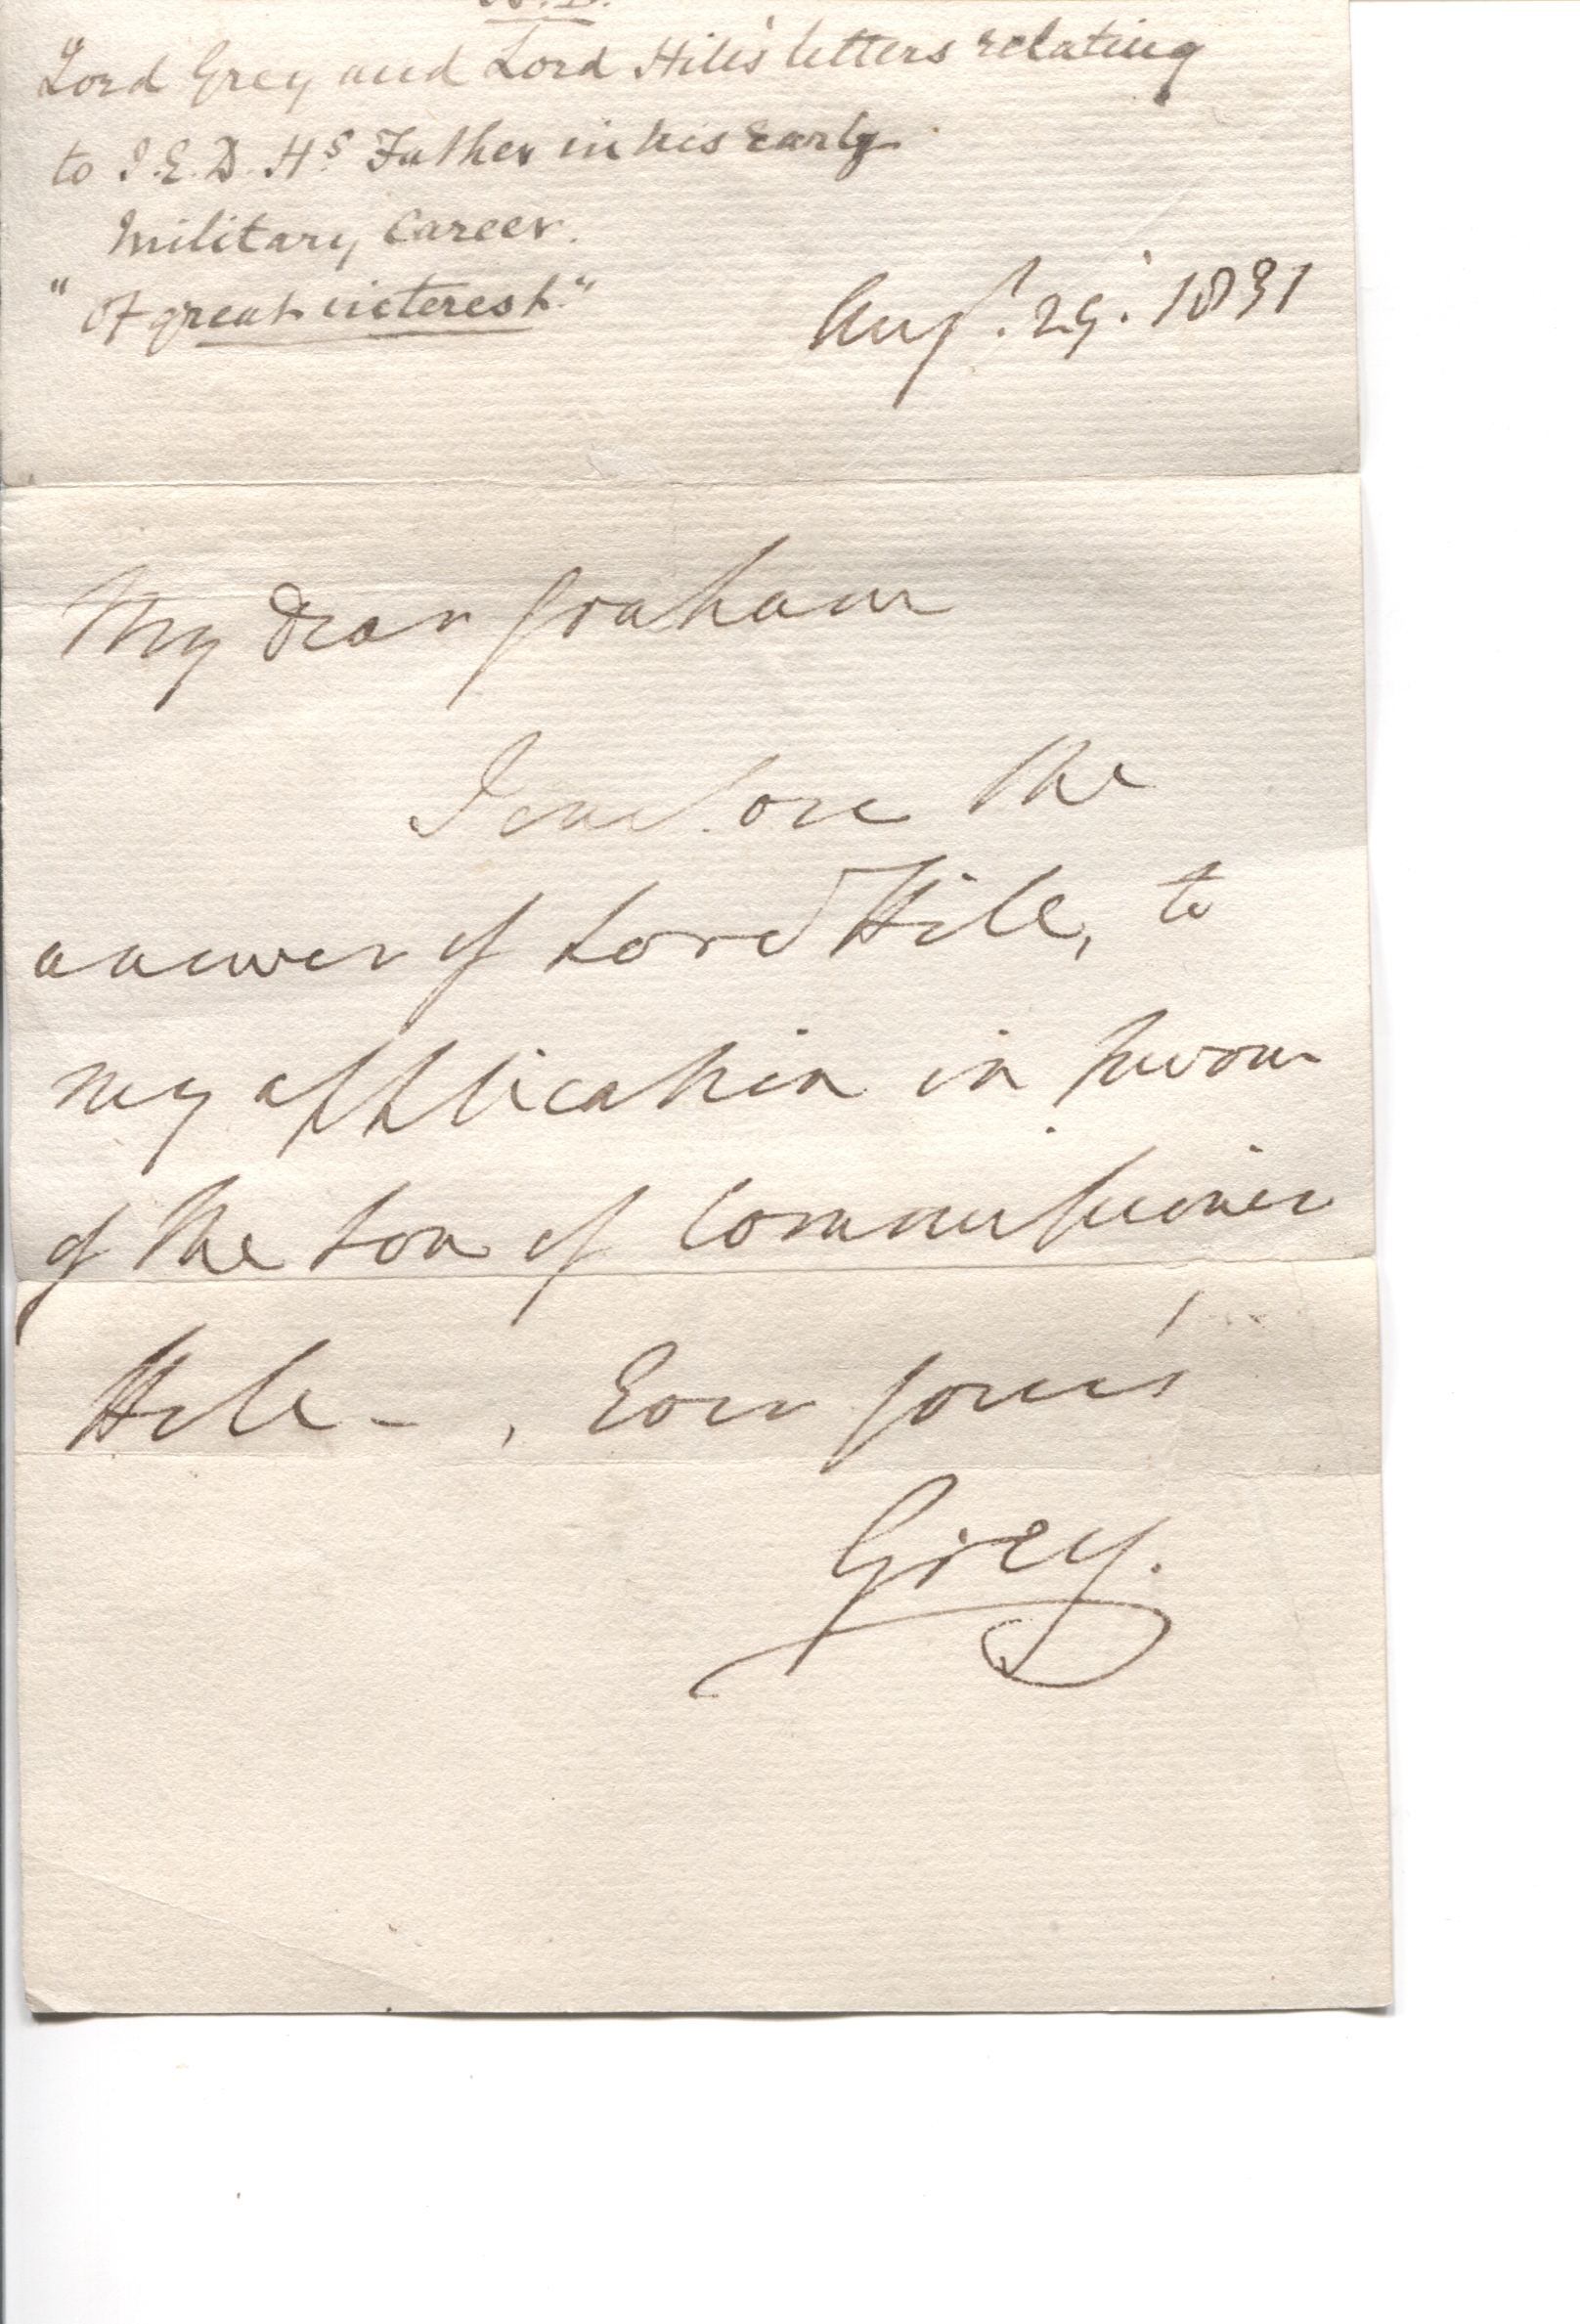 N.B.
Lord Grey and Lord Hill's letters relating
to I.E.D. Hs Father in his early
Military Career.
"Of great interest."
Augt. 29. 1831
My dear Graham
I enclose the
answer of Lord Hill, to
my application in favour
of the Son of Commissioner
Hill - , Ever yours
Grey.